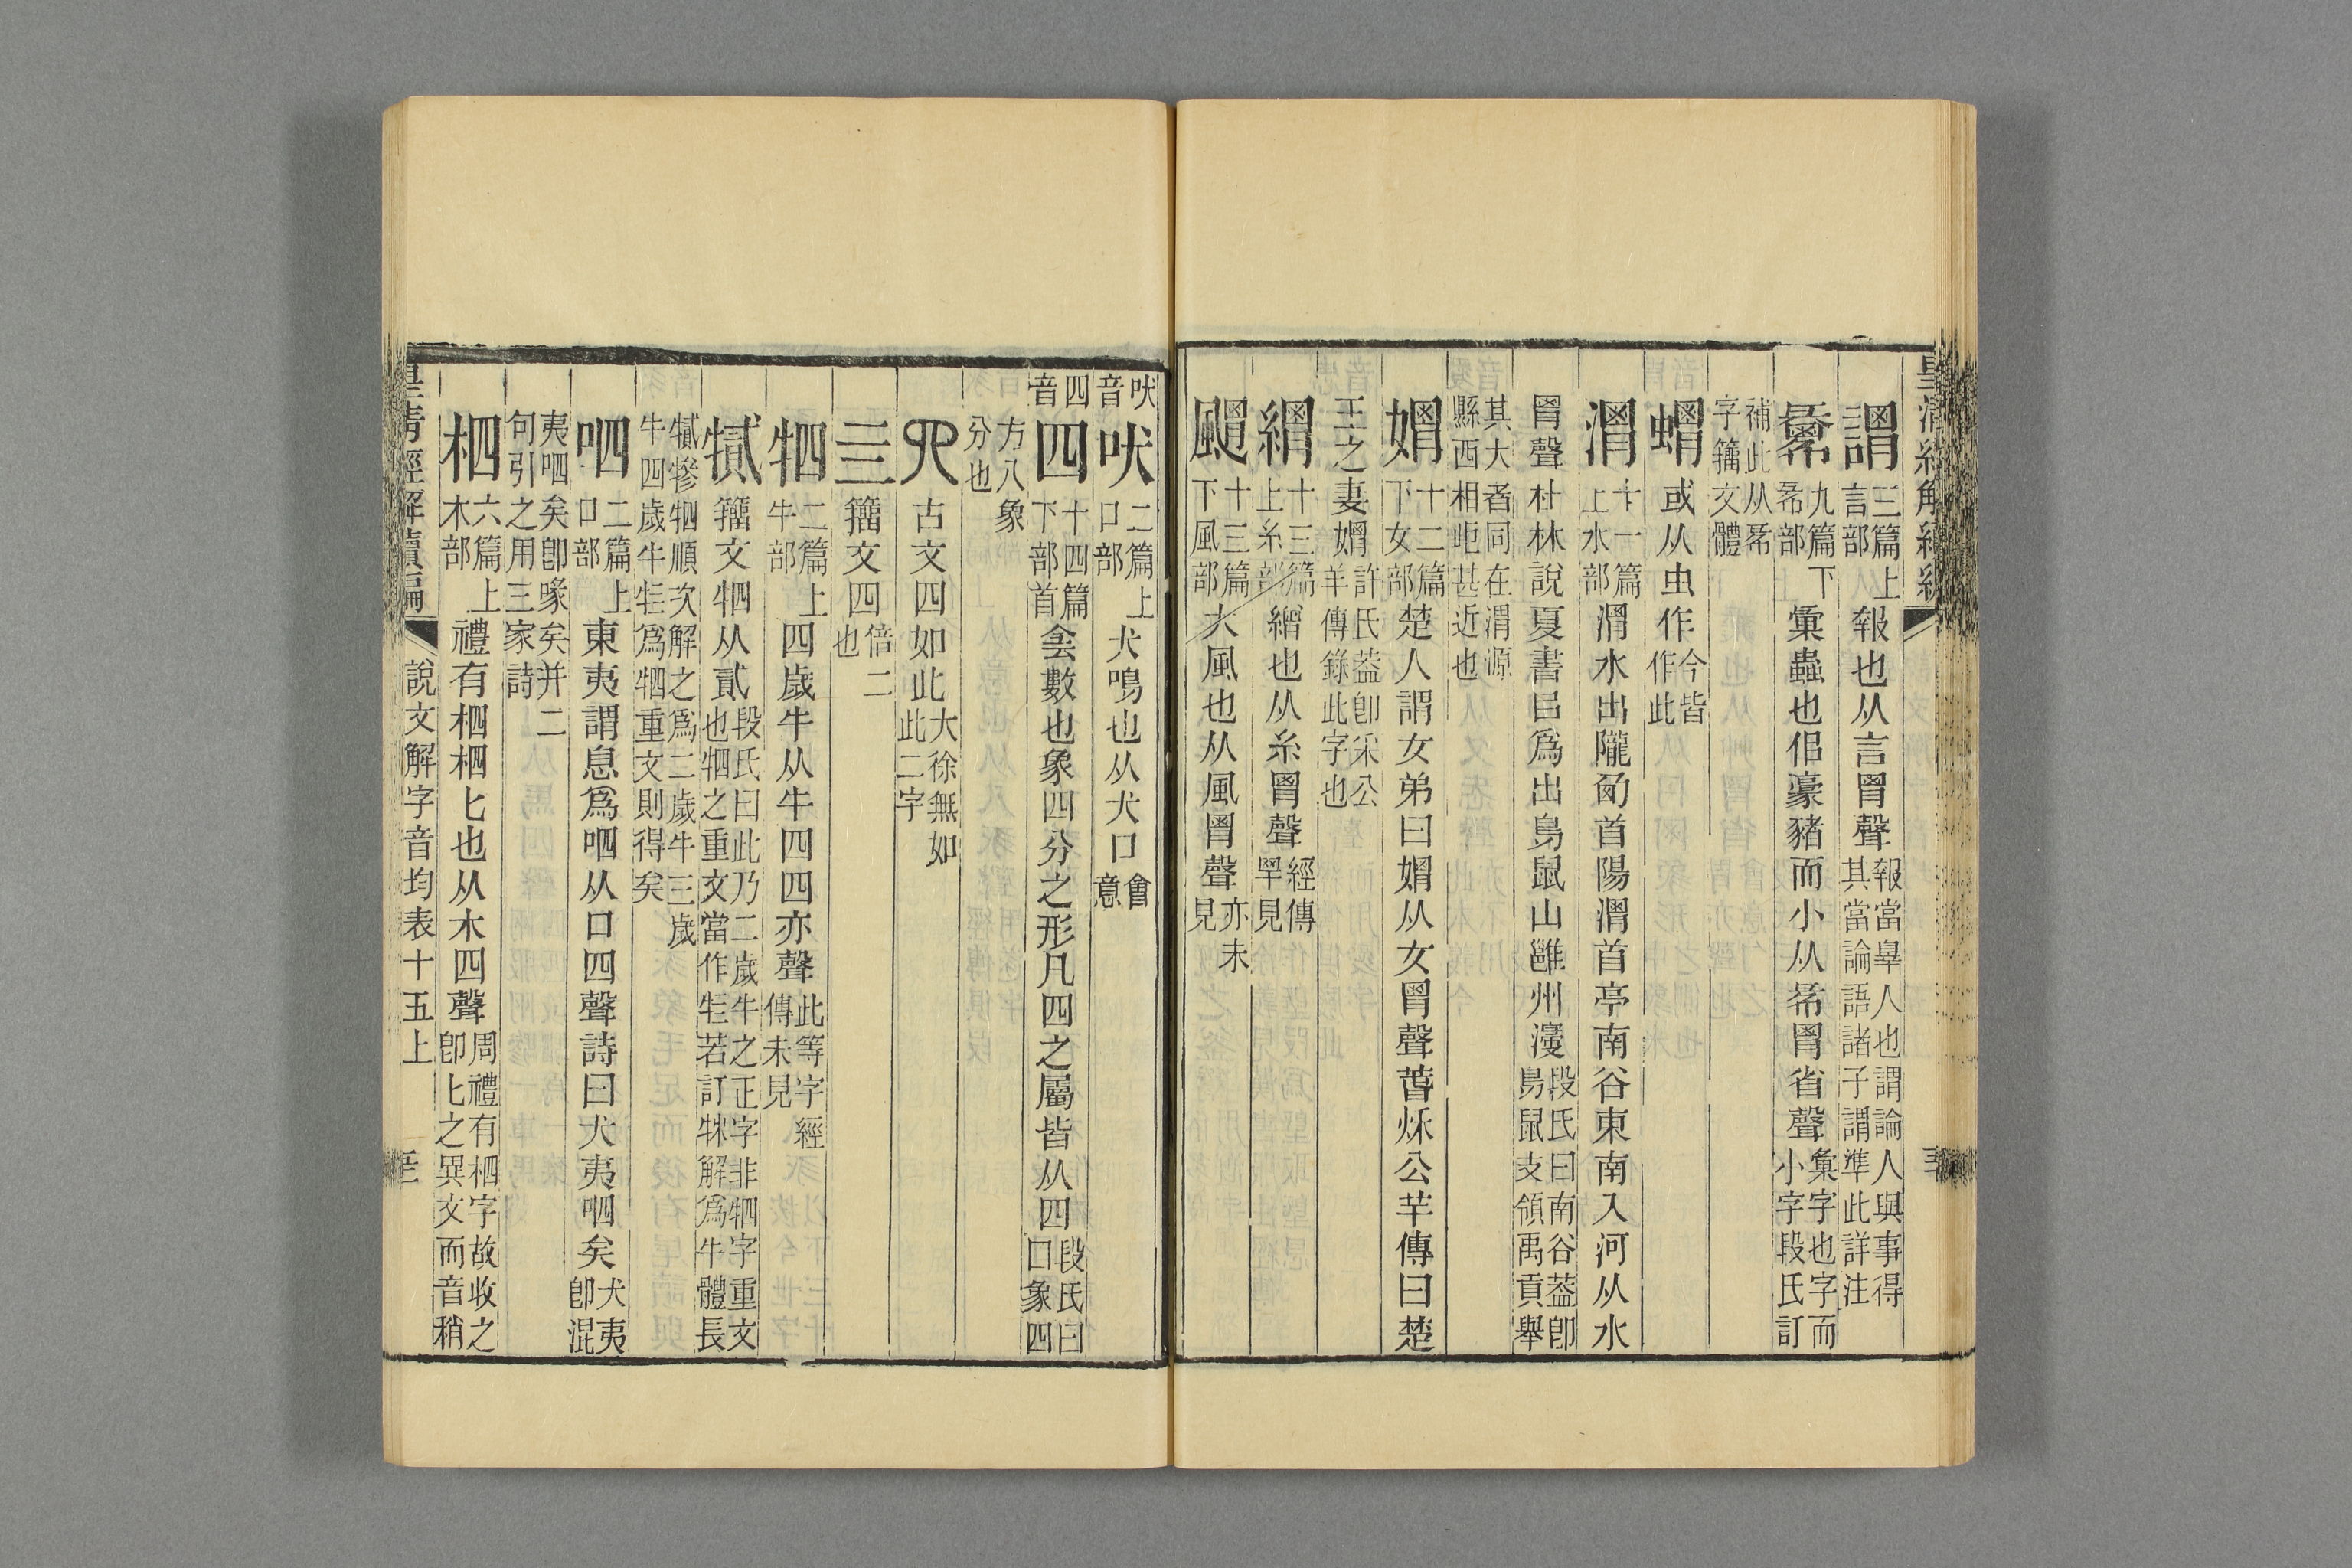 謂三篇上言部報也从言𦞅聲報當辠人也謂論人與事得其當論語諸子謂準此詳注
九篇下㣇部彙蟲也佀豪豬而小从㣇𦞅省聲彙字也字而小字段氏訂
補此从㣇字籒文體
蝟或从虫作今皆作此
渭十一篇上水部渭水出隴西首陽渭首亭南谷東南入河从水
𦞅聲杜林說夏書㠯爲出鳥鼠山雝州濅段氏曰南谷葢卽鳥鼠支領禹貢舉
其大者同在渭源縣西相歫甚近也
媦十二篇下女部楚人謂女弟曰媦从女𦞅聲萅秌公羊傳曰楚
王之妻媦許氏葢卽采公羊傳錄此字也
緭十三篇上糸部繒也从糸𦞅聲經傳罕見
䬑十三篇下風部大風也从風𦞅聲亦未見
吠音
吠二篇上口部犬鳴也从犬口會意
四音
四十四篇下部首侌數也象四分之形凡四之屬皆从四段氏曰囗象四
方八象分也
古文四如此大徐無如此二字
亖籒文四倍二也
牭二篇上牛部四歲牛从牛四四亦聲此等字經傳未見
䭥籒文牭从貳段氏曰此乃二歲牛之正字非牭字重文也牭之重文當作𤘡若訂㸬解爲牛體長
䭥犙牭順次解之爲二歲牛三歲牛四歲牛𤘡爲牭重文則得矣
呬二篇上口部東夷謂息爲呬从口四聲詩曰犬夷呬矣犬夷卽混
夷呬矣卽喙矣并二句引之用三家詩
柶六篇上木部禮有柶柶匕也从木四聲周禮有柶字故收之卽匕之異文而音稍
皇清經解續編 說文解字音均表十五上